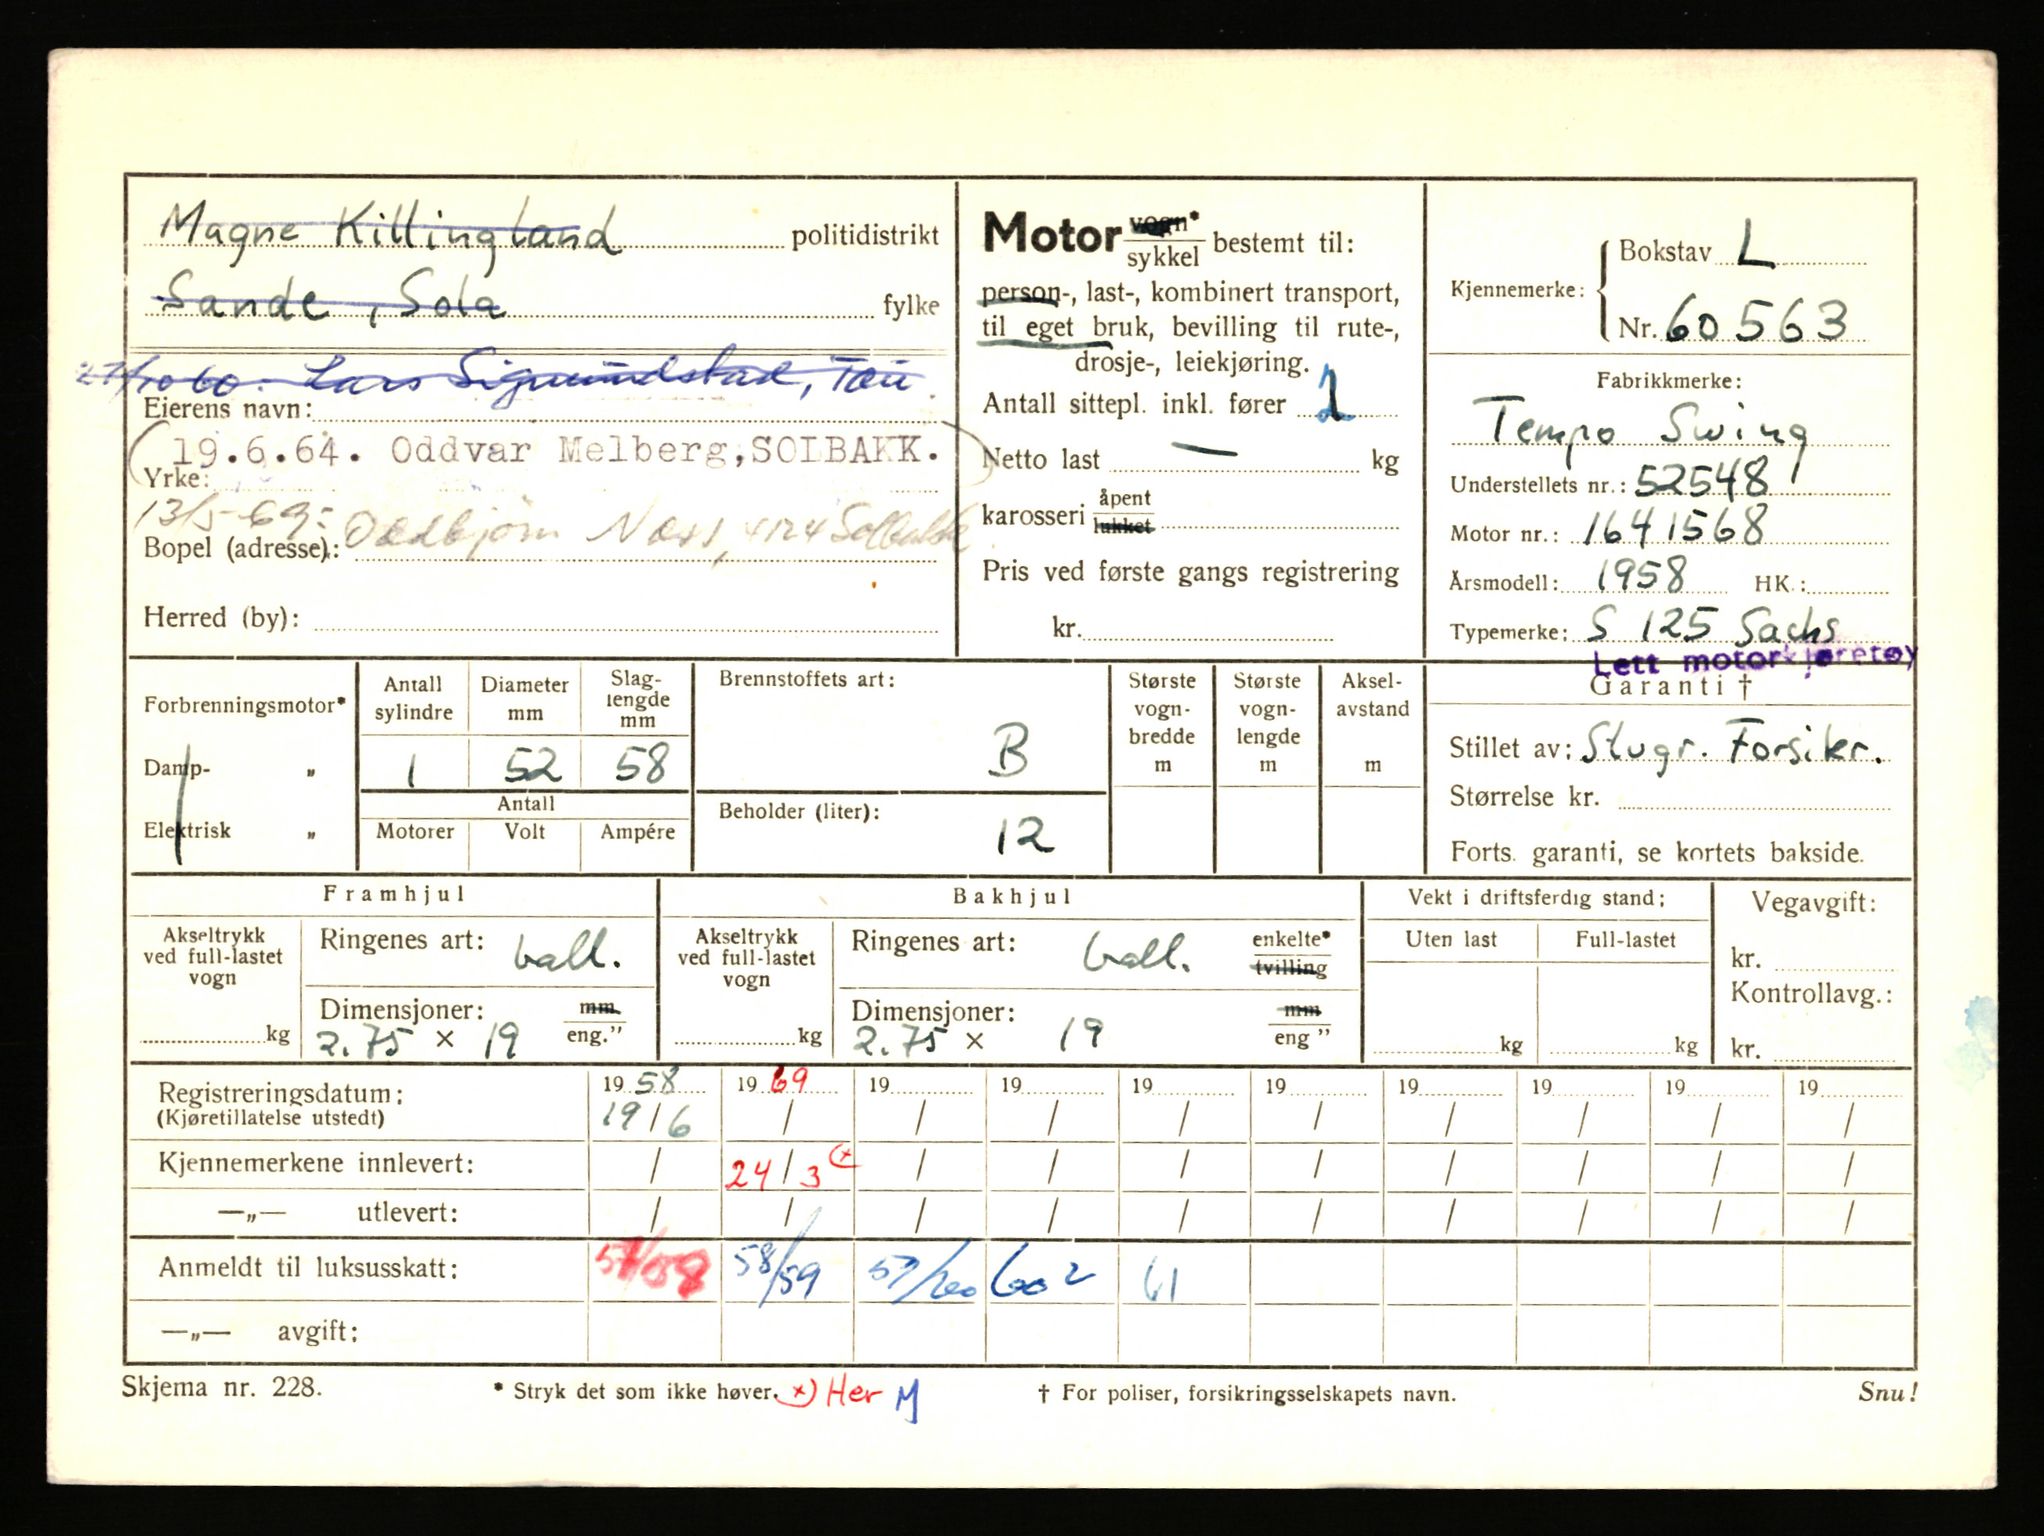 Magne Killingland politidistrikt
Sande, Sola fylke
27/10 60. Lars Sigmundstad, Tau
Eierens navn:
(19.6.64. Oddvar Melberg, SOLBAKK.)
Yrke:
13/5-69: Oddbjørn Næss, 4124 Solbakk
Bopel (adresse):
Herred (by):
Motor vogn*
sykkel bestemt til:
person-, last-, kombinert transport,
til eget bruk, bevilling til rute-,
drosje-, leiekjøring.
Antall sittepl. inkl. fører
Netto last — kg
karosseri åpent
lukket
Pris ved første gangs registrering
kr.
Kjennemerke: Bokstav L
Nr. 60563
Fabrikkmerke:
Tempo Swing
Understellets nr.: 52548
Motor nr.: 1641568
Årsmodell: 1958 HK.:
Typemerke: S 125 Sachs
Lett motorkjøretøy
Garanti †
Stillet av: Stvgr. Forsikr.
Størrelse kr.
Forts. garanti, se kortets bakside.
Forbrenningsmotor*
Damp- „
Elektrisk „
Antall sylindre Diameter mm Slaglengde mm
1 52 58
Antall
Motorer Volt Ampére
Brennstoffets art:
B
Beholder (liter):
12
Største vogn-bredde m
Største vogn-lengde m
Aksel-avstand m
Framhjul
Akseltrykk ved full-lastet vogn
kg
Ringenes art: ball.
Dimensjoner: mm
2.75 × 19 eng.”
Bakhjul
Akseltrykk ved full-lastet vogn
kg
Ringenes art: ball. enkelte*
tvilling
Dimensjoner: mm
2.75 × 19 eng ”
Vekt i driftsferdig stand:
Uten last Full-lastet
kg kg
Vegavgift:
kr.
Kontrollavg.:
kr.
Registreringsdatum: 19 58 19 69 19 19 19 19 19 19 19 19
(Kjøretillatelse utstedt) 19/6 / / / / / / / / /
Kjennemerkene innlevert: / 24/3 x) / / / / / / / /
—„— utlevert: / / / / / / / / / /
Anmeldt til luksusskatt: 57/58 58/59 59/60 60 2 61
—„— avgift:
Skjema nr. 228.
* Stryk det som ikke høver. x) Her M
† For poliser, forsikringsselskapets navn.
Snu!